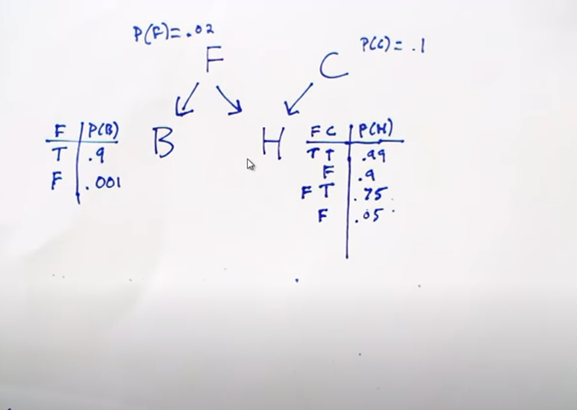 P(F)=.02
F
C
P(C)=.1
F P(B)
T .9
F .001
B
H
F C P(H)
T T .99
F .9
F T .75
F .05